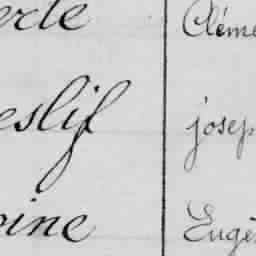 erte Cléme
eslif josep
oine Eugè